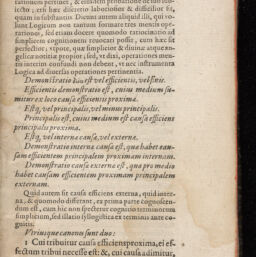 rationem pertinet, & eiusdem probatione de
cto; etsi hæc discretio laboriosior & difficilior sit,
quam in substantiis. Dicunt autem aliquid illi, qui vo-
lunt Logicum non tantum formare res mentis ope-
rationes, sed etiam docere quomodo ratiocinatio ad
simplicem cognitionem revocari possit, cum hæc sit
perfectior; utpote, quæ simplicior & divinæ atque an-
gelicæ notitiæ propior; sed, ut dixi, operationes men-
tis interim confundi non debent, ut nec instrumenta
Logica ad diversas operationes pertinentia.
Demonstratio hîc est vel efficientis, vel finis.
Efficientis demonstratio est, cuius medium su-
mitur ex loco causæ efficientis proxima.
Estq, vel principalis, vel minus principalis.
Principalis est, cuius medium est causa efficiens
principalis proxima.
Estq, vel interna causæ, vel externæ.
Demonstratio interna causæ est, quæ habet cau-
sam efficientem principalem proximam internam.
Demonstratio causæ externæ est, quæ pro medio
habet causam efficientem proximam principalem
externam.
Quid autem sit causa efficiens externa, quid inter-
na, & quomodo differant, ex prima parte cognoscen-
dum est, cum hîc non spectetur cognitio terminorum
simplicium, sed illatio syllogistica ex terminis ante co-
gnitis.
Utriusque canones sunt duo:
1 Cui tribuitur causa efficiens proxima, ei ef-
fectum tribui necesse est: &, cui causa adimitur,